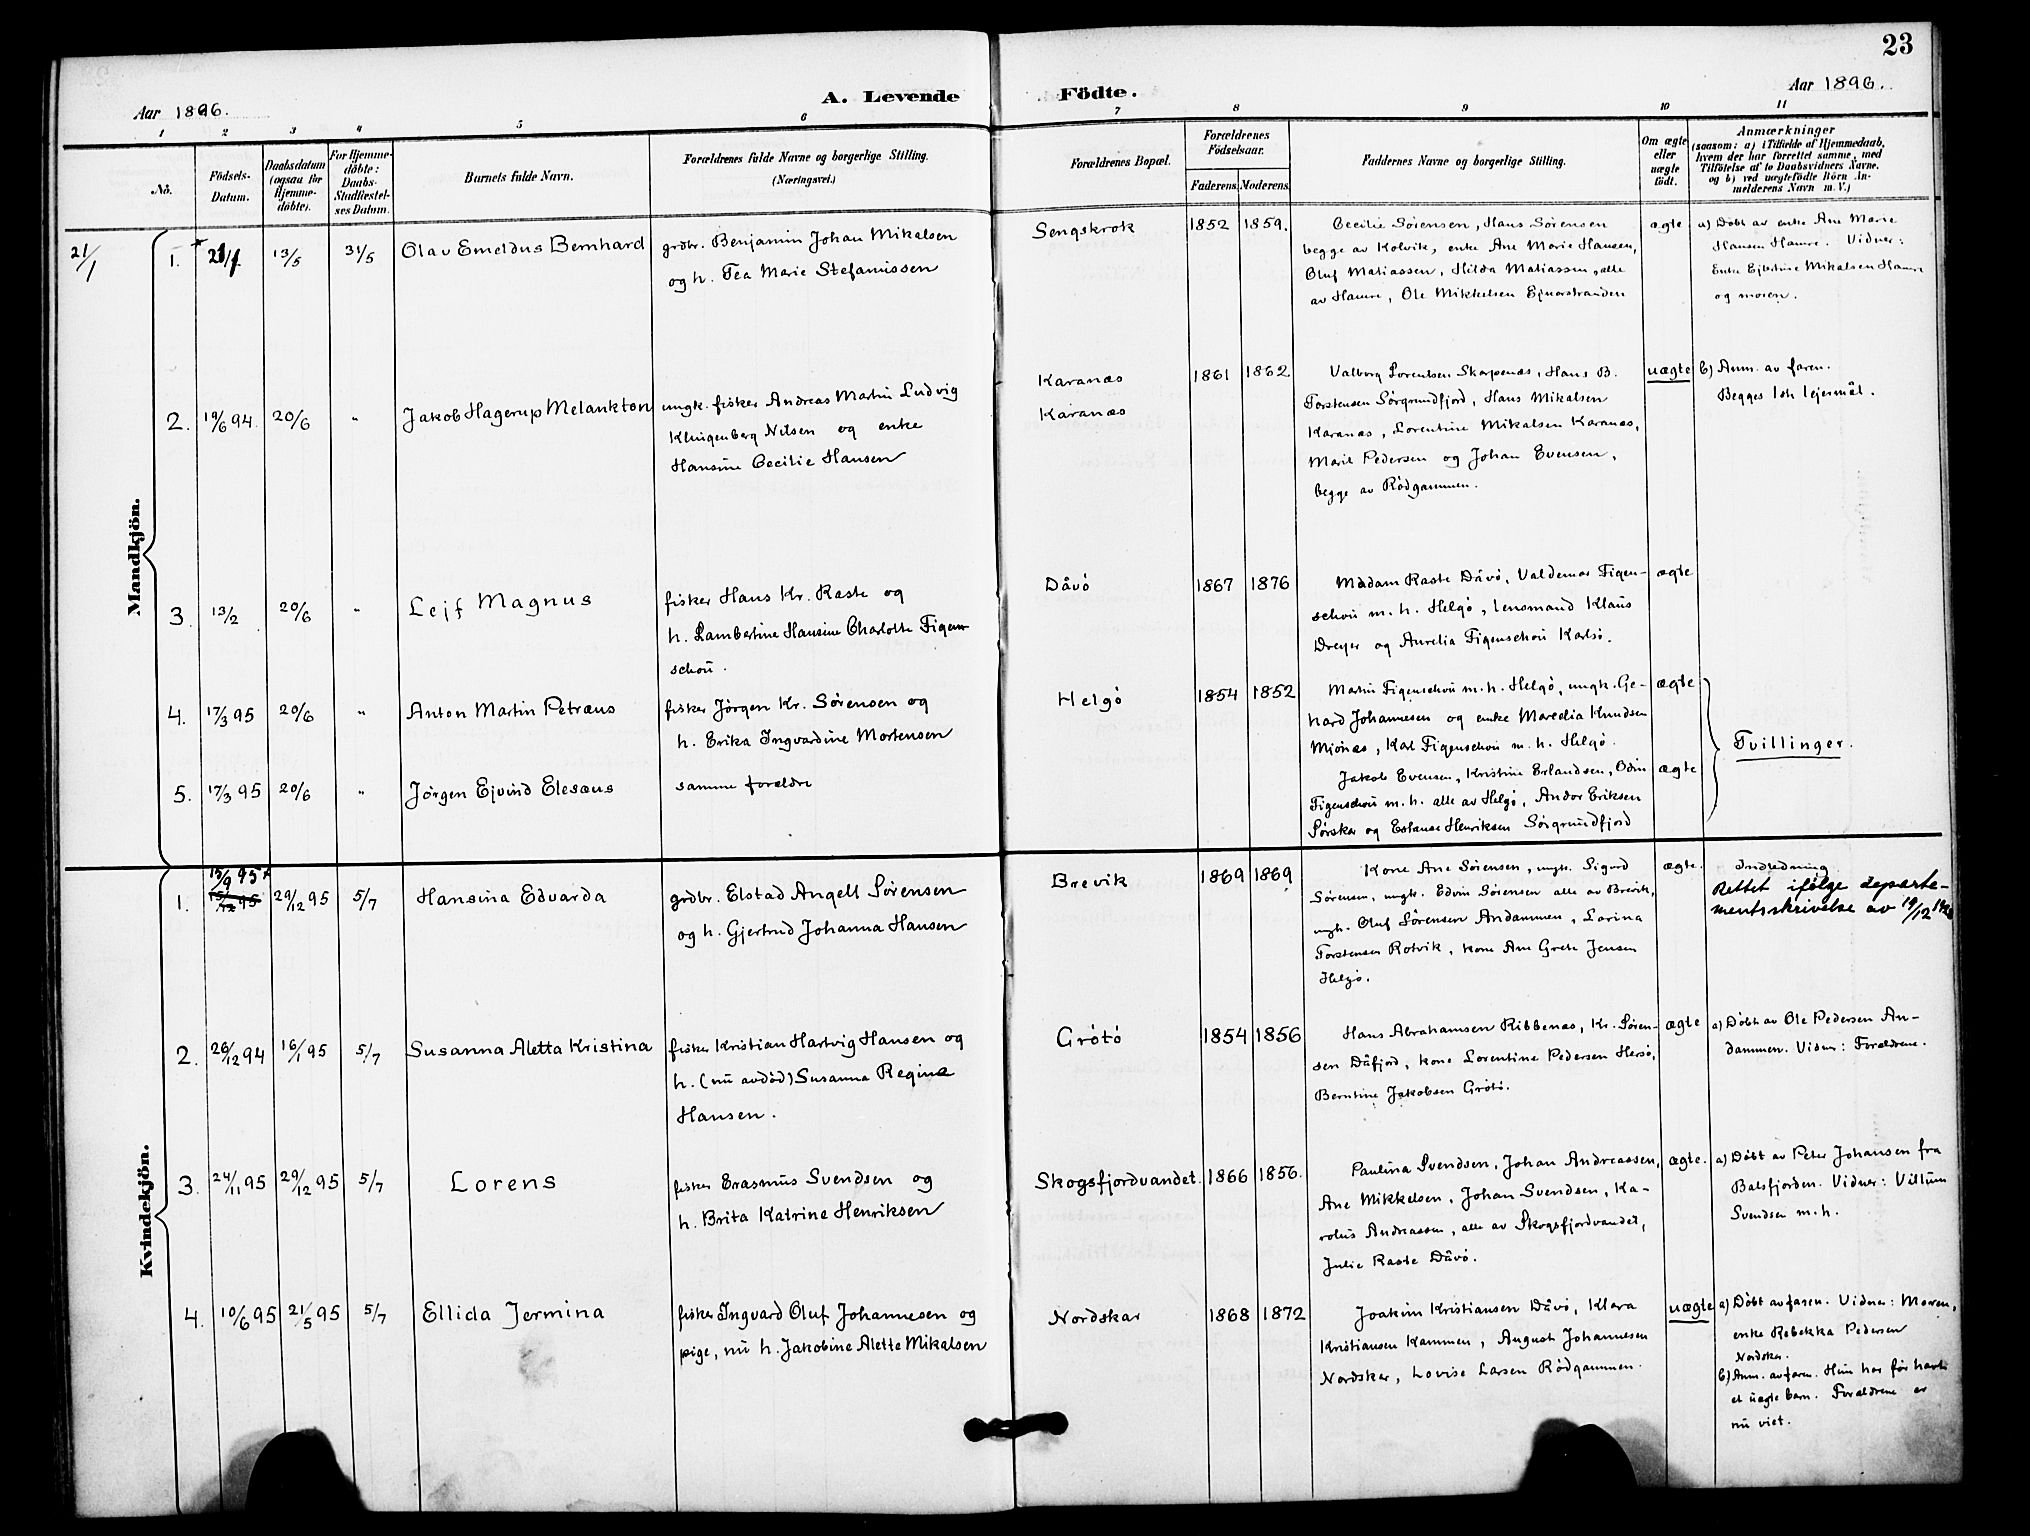 23
Aar 1896.
A. Levende Födte.
Aar 1896.
1 2 3 4 5 6 7 8 9 10 11
No.
Födsels-Datum.
Daabsdatum (ogsaa for Hjemme-döbte).
For Hjemme-döbte: Daabs-Stadfæstel-ses Datum.
Barnets fulde Navn.
Forældrenes fulde Navne og borgerlige Stilling.
(Næringsvei.)
Forældrenes Bopæl.
Forældrenes Födselsaar.
Faderens. Moderens.
Faddernes Navne og borgerlige Stilling.
Om ægte eller uægte födt.
Anmærkninger
(saasom: a) i Tilfælde af Hjemmedaab,
hvem der har forrettet samme, med
Tilföielse af to Daabsvidners Navne.
og b) ved uægtefödte Börn An-
melderens Navn m. V.)
Mandkjön.
21/1
1. 21/1 13/5 31/5 Olav Emeldus Bernhard
grdbr. Benjamin Johan Mikalsen
og h. Tea Marie Stefanussen
Sengskrok 1852 1859.
Cecilie Sørensen, Hans Sørensen
begge av Kolvik, enke Ane Marie Hansen,
Oluf Matiassen, Hilda Matiassen, alle
av Hamre, Ole Mikkelsen Ejnarstranden
ægte
a) Døbt av enke Ane Marie
Hansen Hamre. Vidner:
Enke Ejlertine Mikalsen Hamre
og moren.
2. 19/6 94. 20/6 " Jakob Hagerup Melankton
ungk. fisker Andreas Martin Ludvig
Klingenberg Nilsen og enke
Hansine Cecilie Hansen
Karanæs
Karanæs
1861 1862
Valborg Lorentsen Skarpenæs, Hans B.
Torstensen Sørgrundfjord, Hans Mikalsen
Karanæs, Lorentine Mikalsen Karanæs,
Marit Pedersen og Johan Evensen,
begge av Rødgammen.
uægte
b) Anm. av faren.
Begges 1ste lejermål.
3. 13/2 20/6 " Lejf Magnus
fisker Hans Kr. Raste og
h. Lambertine Hansine Charlotte Figen-
schou.
Dåvø 1867 1876
Madam Raste Dåvø, Valdemar Figen-
schou m. h. Helgø, lensmand Klaus
Dreyer og Aurelia Figenschou Karlsø.
ægte
4. 17/3 95 20/6 " Anton Martin Petræus
fisker Jørgen Kr. Sørensen og
h. Erika Ingvardine Mortensen
Helgø 1854 1852
Martin Figenschou m. h. Helgø, ungk. Ge-
hard Johannesen og enke Maredia Knudsen
Mjønæs, Karl Figenschou m. h. Helgø.
ægte
Tvillinger.
5. 17/3 95 20/6 " Jørgen Ejvind Elesæus
samme forældre
Jakob Evensen, Kristine Erlandsen, Odin
Figenschou m. h. alle av Helgø, Andor Eriksen
Sørskar og Henriksen Sørgrundfjord
ægte
Kvindekjön.
1. 15/9 95 15/12 95 29/12 95 5/7 Hansina Edvarda
grdbr. Elstad Angell Sørensen
og h. Gjertrud Johanna Hansen
Brevik 1869 1869
Kone Ane Sørensen, ungk. Sigurd
Sørensen, ungk. Edvin Sørensen alle av Brevik,
ungk. Oluf Sørensen Andammen, Larina
Torstensen Rotvik, kone Ane Grete Jensen
Helgø.
ægte.
Rettet ifølge departe-
mentsskrivelse av 19/12
2. 26/12 94 16/1 95 5/7 Susanna Aletta Kristina
fisker Kristian Hartvig Hansen og
h. (nu avdød) Susanna Regina
Hansen.
Grøtø 1854 1856
Hans Abrahamsen Ribbenæs, Kr. Søren-
sen Dåfjord, kone Lorentine Pedersen Hersø,
Berntine Jakobsen Grøtø.
ægte
a) Døbt av Ole Pedersen An-
dammen. Vidner: Forældrene.
3. 24/11 95 29/12 95 5/7 Lorens
fisker Erasmus Svendsen og
h. Brita Katrine Henriksen
Skogsfjordvandet. 1866 1856.
Paulina Svendsen, Johan Andreassen,
Ane Mikkelsen, Johan Svendsen, Ka-
rolus Andreassen, alle av Skogsfjordvandet,
Julie Raste Dåvø.
ægte.
a) Døbt av Peter Johansen fra
Balsfjorden. Vidner: Villum
Svendsen m. h.
4. 10/6 95 21/5 95 5/7 Ellida Jermina
fisker Ingvard Oluf Johannesen og
pige, nu h. Jakobine Alette Mikalsen
Nordskar 1868 1872
Joakim Kristiansen Dåvø, Klara
Kristiansen Kammen, August Johannesen
Nordskar, Lovise Larsen Rødgammen.
uægte
a) Døbt av faren. Vidner: Moren,
enke Rebekka Pedersen
Nordskar.
b) Anm. av faren. Hun har før havt
et uægte barn. Forældrene er
nu viet.